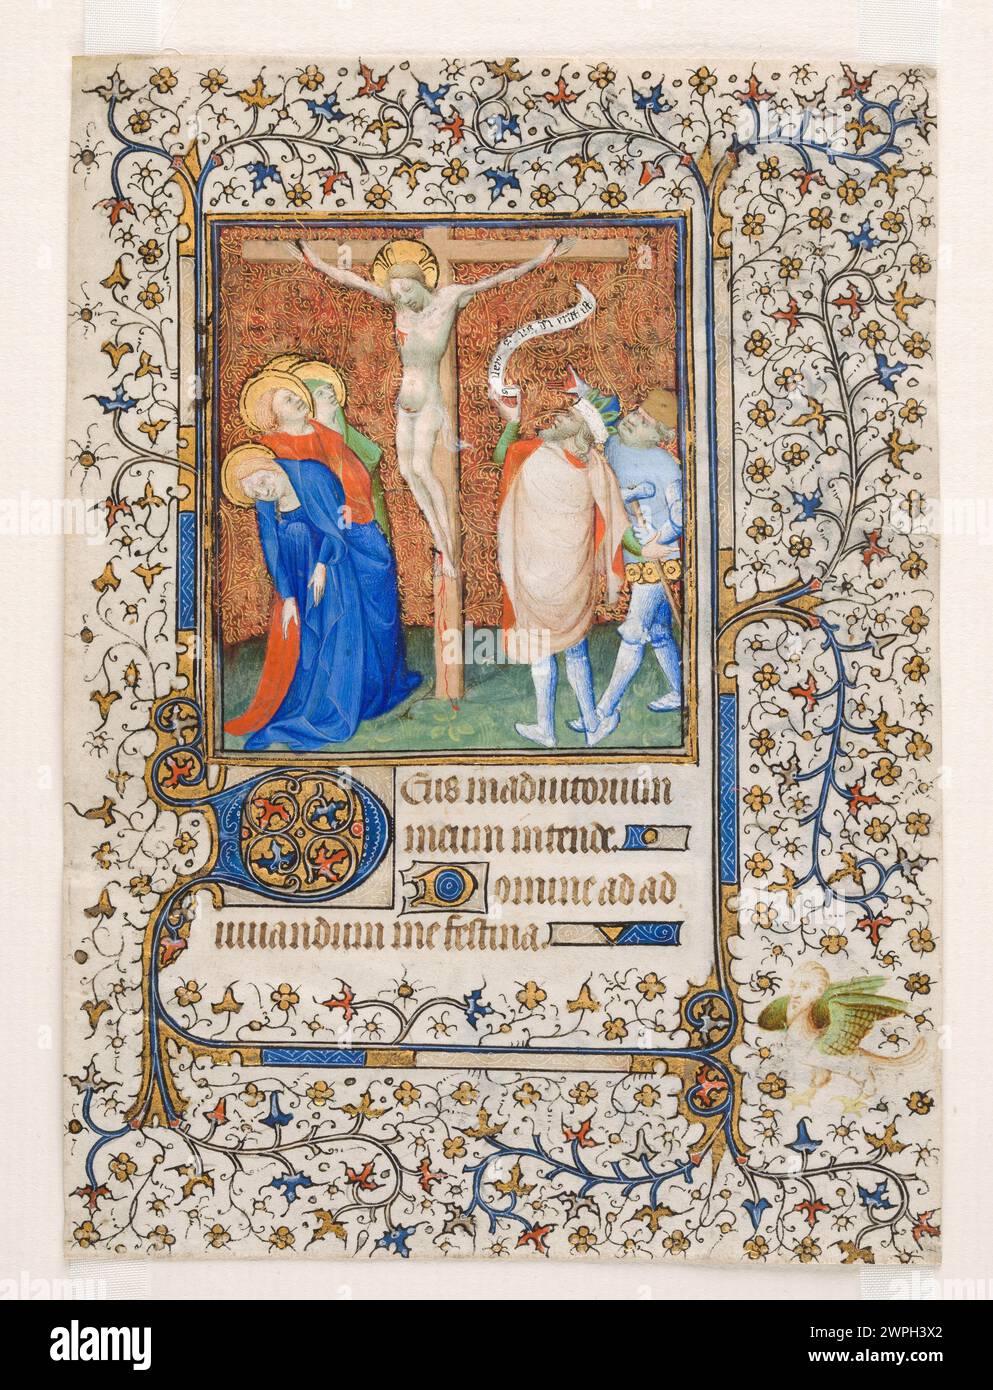 Deus in adiutorium
meum intende.
Domine ad ad
iuuandum me festina.
alamy
alamy
Image ID: 2WPH3X2
www.alamy.com